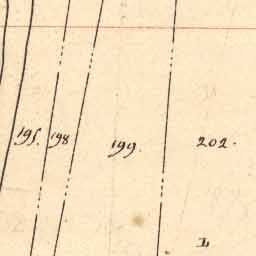 195. 198 199. 202.